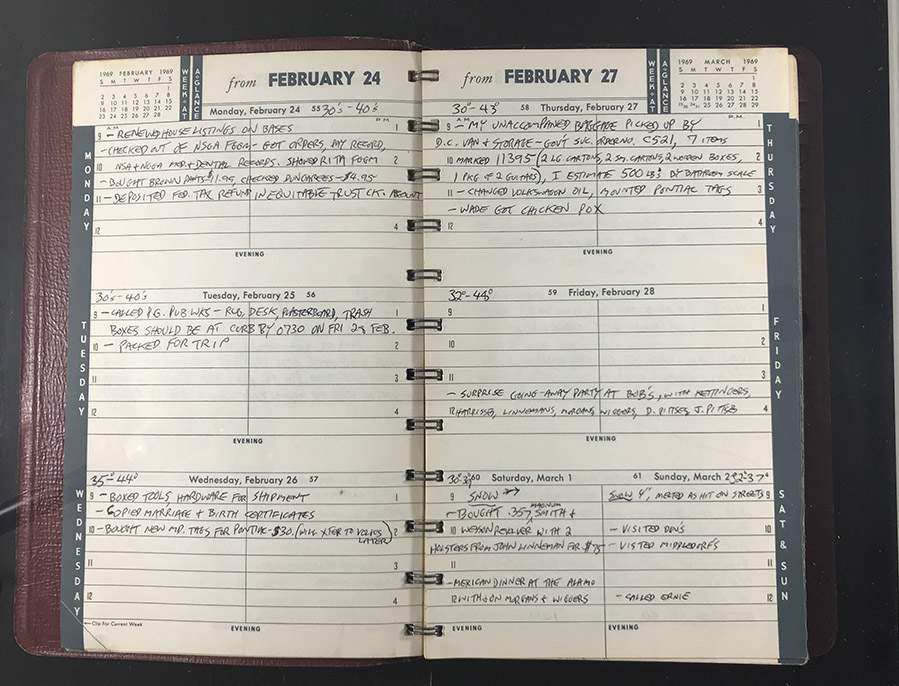 1969 FEBRUARY 1969
S M T W T F S
1
2 3 4 5 6 7 8
9 10 11 12 13 14 15
16 17 18 19 20 21 22
23 24 25 26 27 28
WEEK-AT
A-GLANCE
from FEBRUARY 24
Monday, February 24 55 30's-40's
MONDAY
A.M. P.M.
9 - RENEWED HOUSE LISTINGS ON BASES 1
- CHECKED OUT OF NSGA FGGM - GOT ORDERS, PAY RECORD,
10 NSA & NSGA MED & DENTAL RECORDS. SHOWED RITA FGGM 2
- BOUGHT BROWN PANTS $11.95, CHECKED DUNGAREES - $4.95
11 - DEPOSITED FED. TAX REFUND IN EQUITABLE TRUST CK. ACCOUNT
12 4
EVENING
30's-40's Tuesday, February 25 56
TUESDAY
9 - CALLED P.G. PUB WKS - RUG, DESK, PLASTERBOARD, TRASH
BOXES SHOULD BE AT CURB BY 0730 ON FRI 28 FEB.
10 - PACKED FOR TRIP 2
11 3
12 4
EVENING
35°-44° Wednesday, February 26 57
WEDNESDAY
9 - BOXED TOOLS, HARDWARE FOR SHIPMENT 1
- COPIED MARRIAGE & BIRTH CERTIFICATES
10 - BOUGHT NEW MD. TAGS FOR PONTIAC - $30. (WILL XFER TO VOLKS LATER) 2
11 3
12 4
Clip For Current Week
EVENING
from FEBRUARY 27
WEEK-AT
A-GLANCE
1969 MARCH 1969
S M T W T F S
1
2 3 4 5 6 7 8
9 10 11 12 13 14 15
16 17 18 19 20 21 22
23 24 25 26 27 28 29
30°-43° 58 Thursday, February 27
THURSDAY
A.M. P.M.
9 - MY UNACCOMPANIED BAGGAGE PICKED UP BY 1
D.C. VAN & STORAGE - GOV'T SVC. ORDER NO. C521, 7 ITEMS
10 MARKED 11395 (2 LG. CARTONS, 2 SM. CARTONS, 2 WOODEN BOXES, 2
1 PKG OF 2 GUITARS), I ESTIMATE 500 LBS BY BATHROOM SCALE
11 - CHANGED VOLKSWAGON OIL, MOUNTED PONTIAC TAGS 3
- WADE GOT CHICKEN POX
12 4
EVENING
32°-48° 59 Friday, February 28
FRIDAY
9 1
10 2
11 3
- SURPRISE GOING-AWAY PARTY AT BOB'S, WITH KETTINGERS,
12 HARRISSES, LINNEMANS, MORGANS, WIGGERS, D. PITTS, J. PITTS 4
EVENING
60 Saturday, March 1
SAT & SUN
9 SNOW →
- BOUGHT .357 MAGNUM SMITH &
10 WESSON REVOLVER WITH 2
HOLSTERS FROM JOHN LINNEMAN FOR $75
11
- MEXICAN DINNER AT THE ALAMO
12 WITH MORGANS & WIGGERS
EVENING
61 Sunday, March 2 32-37°
SNOW 4", MELTED AS HIT ON STREETS 9
- VISITED DON'S 10
- VISITED MIDDLEDORF'S
11
- CALLED ERNIE 12
EVENING